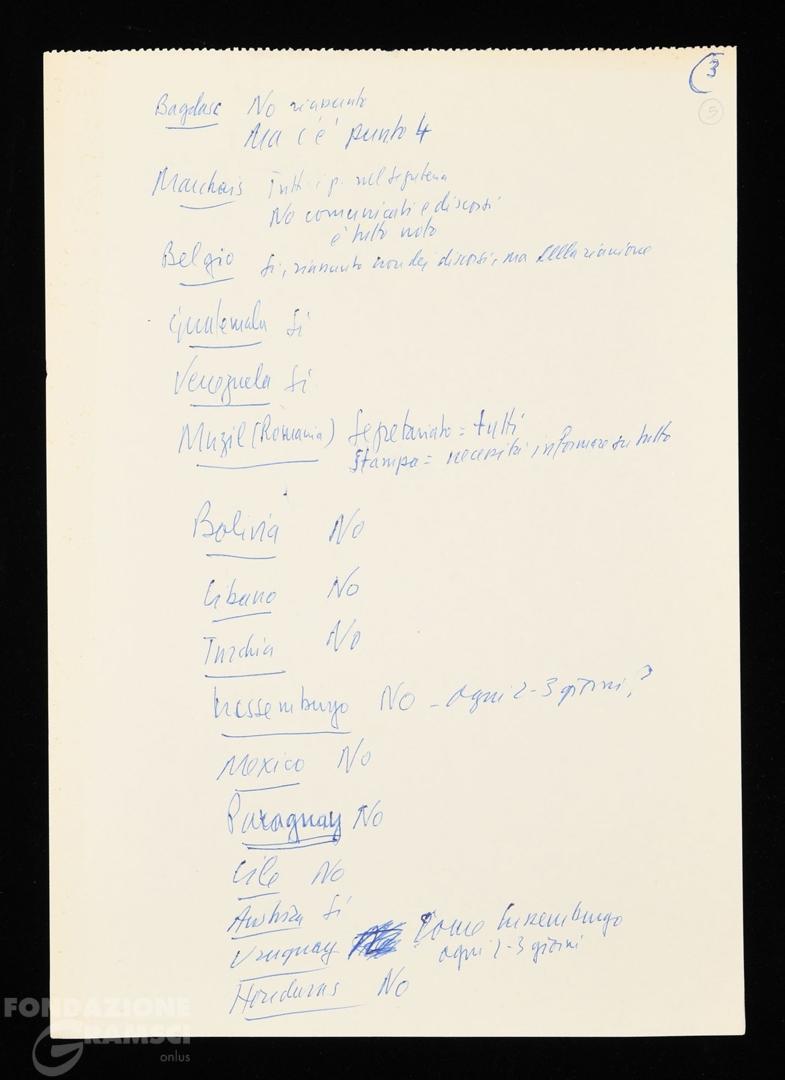 3
5
Bagdasc No riassunto
Ma c'è punto 4
Marchais Tutti i p. nel segreteria
No comunicati e discorsi
è tutto noto
Belgio Si, riassunto non dei discorsi, ma della riunione
Guatemala Si
Venezuela Si
(Romania) Segretariato = tutti
Stampa = necessità informare su tutto
Bolivia No
Libano No
Turchia No
Lussemburgo No - ogni 2-3 giorni?
Mexico No
Paraguay No
Cile No
Austria Si
Uruguay Come Lussemburgo
ogni 2-3 giorni
Honduras No
FONDAZIONE
GRAMSCI
onlus